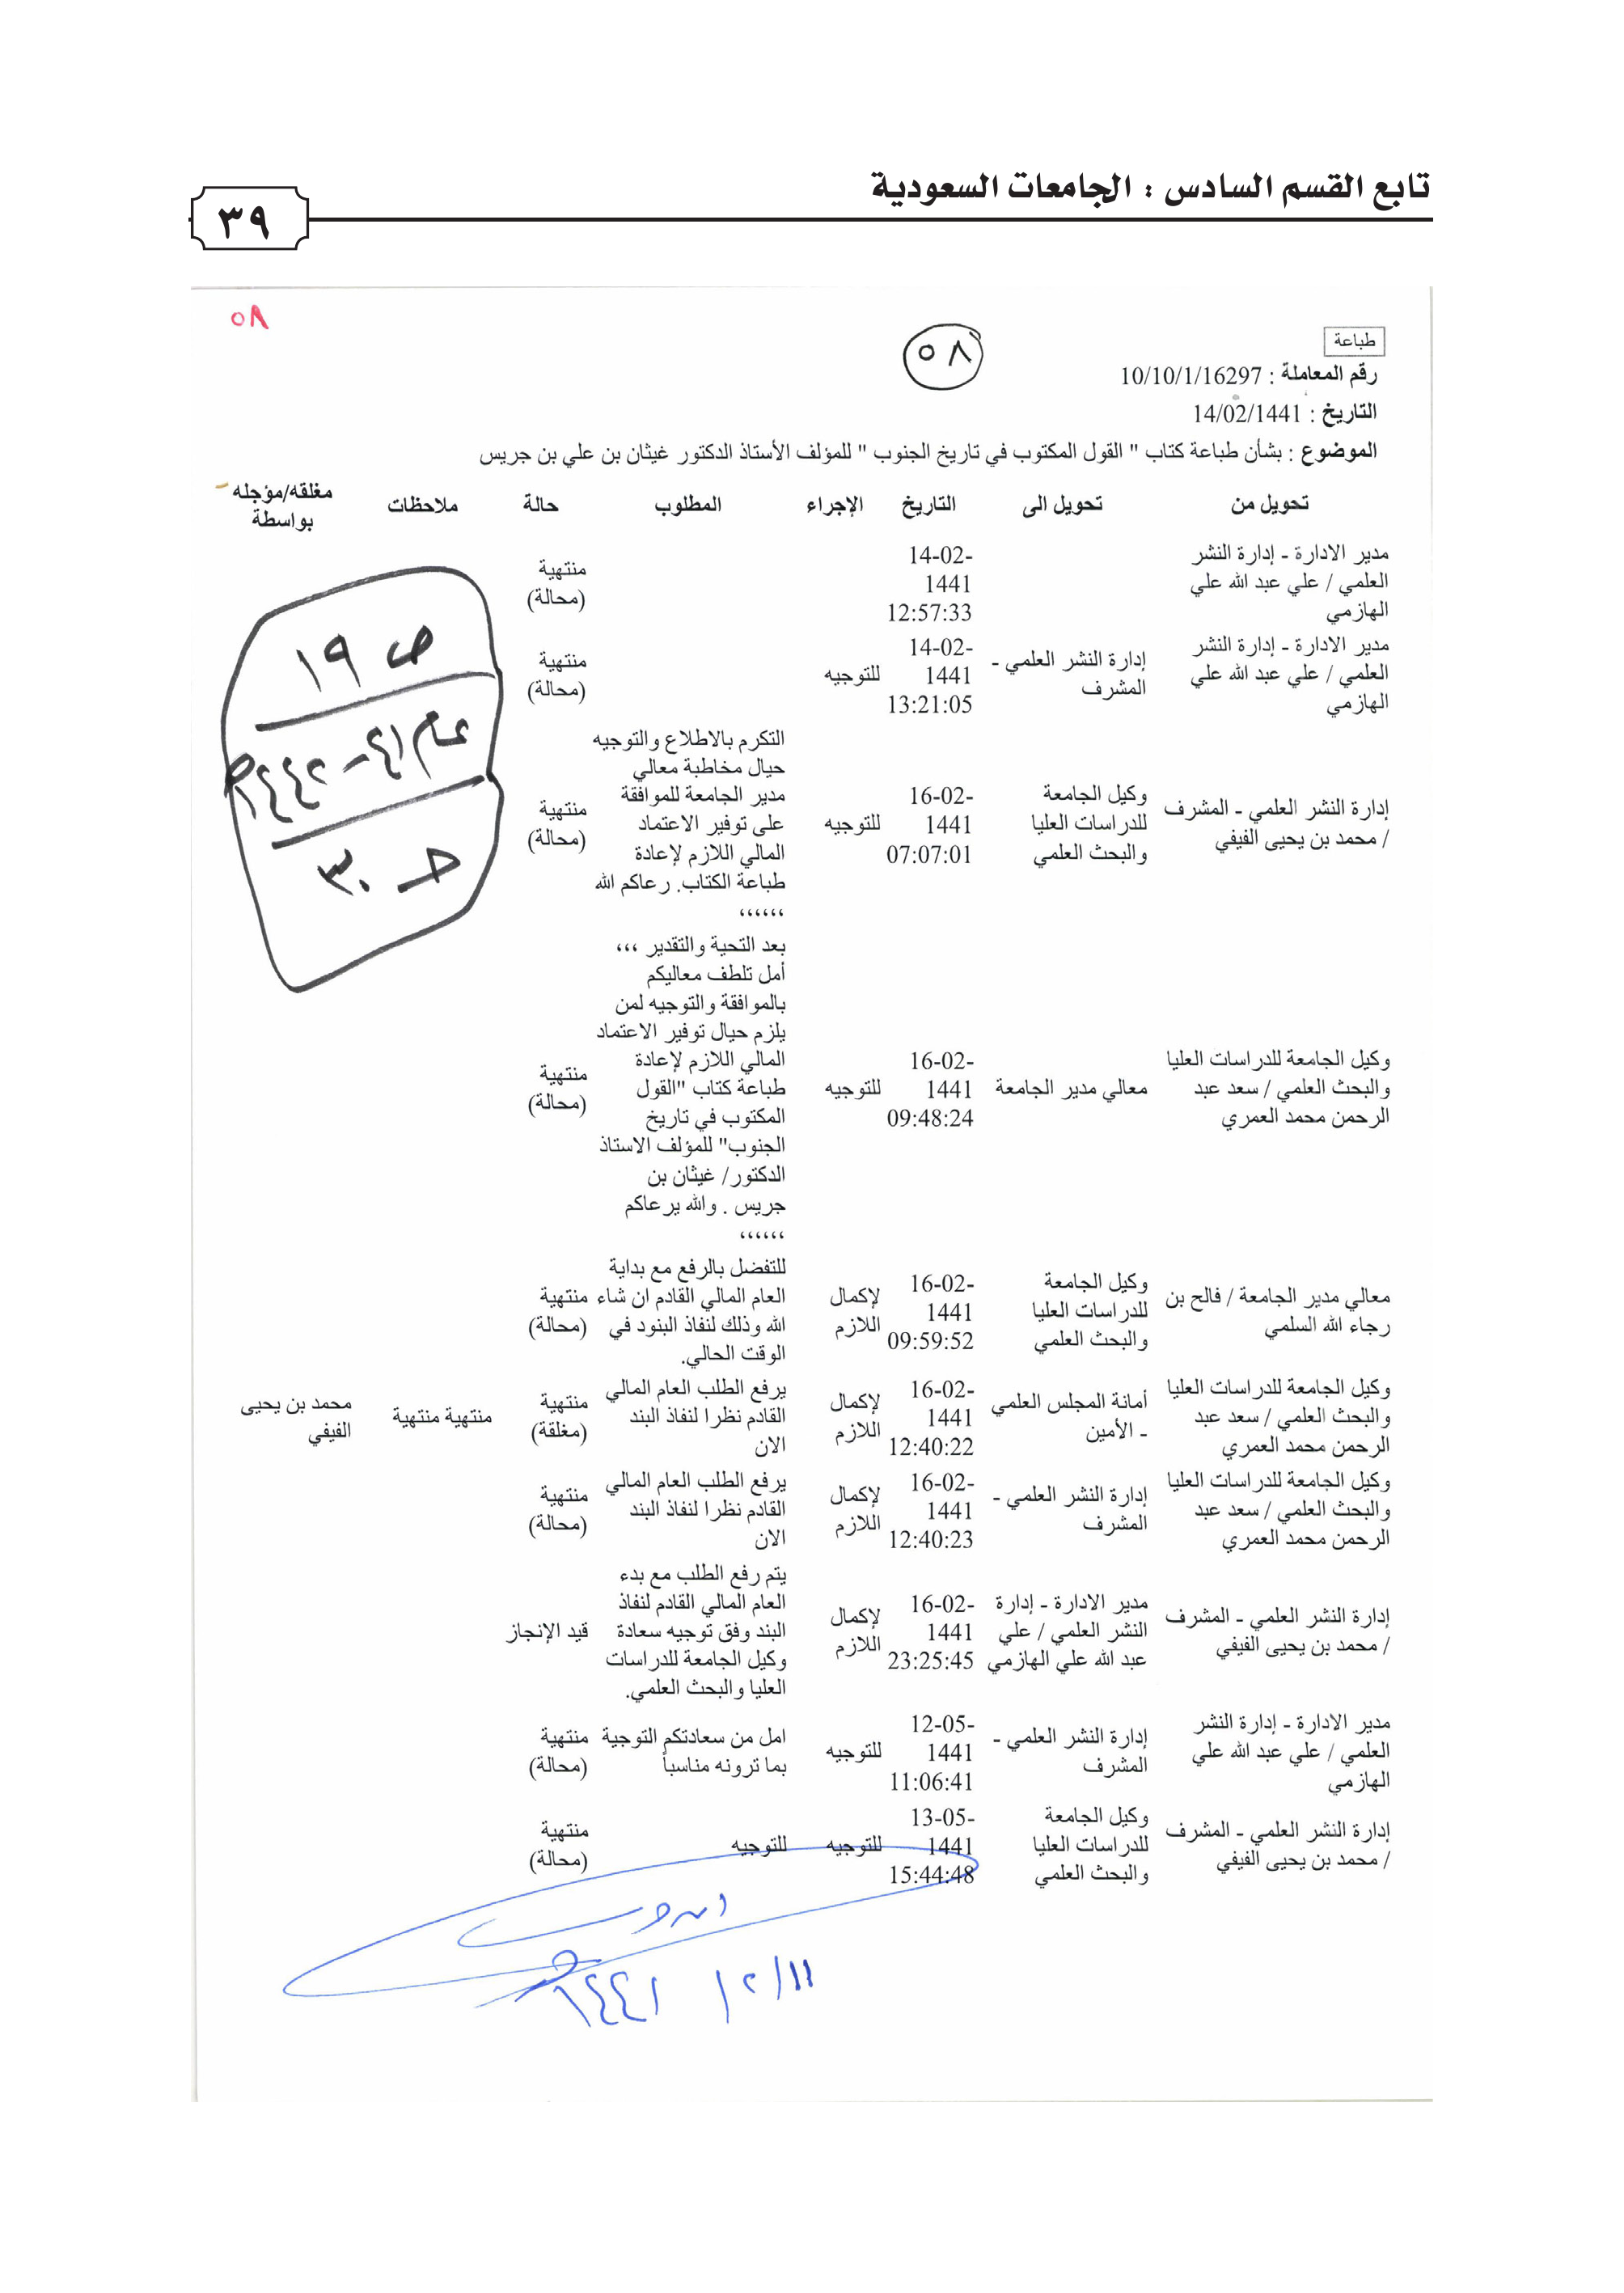 تابع القسم السادس : الجامعات السعودية
٣٩
٥٨
٥٨
طباعة
رقم المعاملة : 10/10/1/16297
التاريخ : 14/02/1441
الموضوع : بشأن طباعة كتاب " القول المكتوب في تاريخ الجنوب " للمؤلف الأستاذ الدكتور غيثان بن علي بن جريس
تحويل من تحويل الى التاريخ الإجراء المطلوب حالة ملاحظات مغلقه/مؤجله
بواسطة
مدير الادارة - إدارة النشر
العلمي / علي عبد الله علي
الهازمي
14-02-
1441
12:57:33
منتهية
(محالة)
مدير الادارة - إدارة النشر
العلمي / علي عبد الله علي
الهازمي
إدارة النشر العلمي -
المشرف
14-02-
1441
13:21:05
للتوجيه
منتهية
(محالة)
إدارة النشر العلمي - المشرف
/ محمد بن يحيى الفيفي
وكيل الجامعة
للدراسات العليا
والبحث العلمي
16-02-
1441
07:07:01
للتوجيه
التكرم بالاطلاع والتوجيه
حيال مخاطبة معالي
مدير الجامعة للموافقة
على توفير الاعتماد
المالي اللازم لإعادة
طباعة الكتاب. رعاكم الله
،،،،،،
منتهية
(محالة)
وكيل الجامعة للدراسات العليا
والبحث العلمي / سعد عبد
الرحمن محمد العمري
معالي مدير الجامعة
16-02-
1441
09:48:24
للتوجيه
بعد التحية والتقدير ،،،
أمل تلطف معاليكم
بالموافقة والتوجيه لمن
يلزم حيال توفير الاعتماد
المالي اللازم لإعادة
طباعة كتاب "القول
المكتوب في تاريخ
الجنوب" للمؤلف الاستاذ
الدكتور/ غيثان بن
جريس . والله يرعاكم
،،،،،،
منتهية
(محالة)
معالي مدير الجامعة / فالح بن
رجاء الله السلمي
وكيل الجامعة
للدراسات العليا
والبحث العلمي
16-02-
1441
09:59:52
لإكمال
اللازم
للتفضل بالرفع مع بداية
العام المالي القادم ان شاء
الله وذلك لنفاذ البنود في
الوقت الحالي.
منتهية
(محالة)
وكيل الجامعة للدراسات العليا
والبحث العلمي / سعد عبد
الرحمن محمد العمري
أمانة المجلس العلمي
- الأمين
16-02-
1441
12:40:22
لإكمال
اللازم
يرفع الطلب العام المالي
القادم نظرا لنفاذ البند
الان
منتهية
(مغلقة)
منتهية منتهية
محمد بن يحيى
الفيفي
وكيل الجامعة للدراسات العليا
والبحث العلمي / سعد عبد
الرحمن محمد العمري
إدارة النشر العلمي -
المشرف
16-02-
1441
12:40:23
لإكمال
اللازم
يرفع الطلب العام المالي
القادم نظرا لنفاذ البند
الان
منتهية
(محالة)
إدارة النشر العلمي - المشرف
/ محمد بن يحيى الفيفي
مدير الادارة - إدارة
النشر العلمي / علي
عبد الله علي الهازمي
16-02-
1441
23:25:45
لإكمال
اللازم
يتم رفع الطلب مع بدء
العام المالي القادم لنفاذ
البند وفق توجيه سعادة
وكيل الجامعة للدراسات
العليا والبحث العلمي.
قيد الإنجاز
مدير الادارة - إدارة النشر
العلمي / علي عبد الله علي
الهازمي
إدارة النشر العلمي -
المشرف
12-05-
1441
11:06:41
للتوجيه
امل من سعادتكم التوجية
بما ترونه مناسباً
منتهية
(محالة)
إدارة النشر العلمي - المشرف
/ محمد بن يحيى الفيفي
وكيل الجامعة
للدراسات العليا
والبحث العلمي
13-05-
1441
15:44:48
للتوجيه
للتوجيه
منتهية
(محالة)
ص ١٩
عام ٤١-١٤٤٢هـ
ح ٣٠